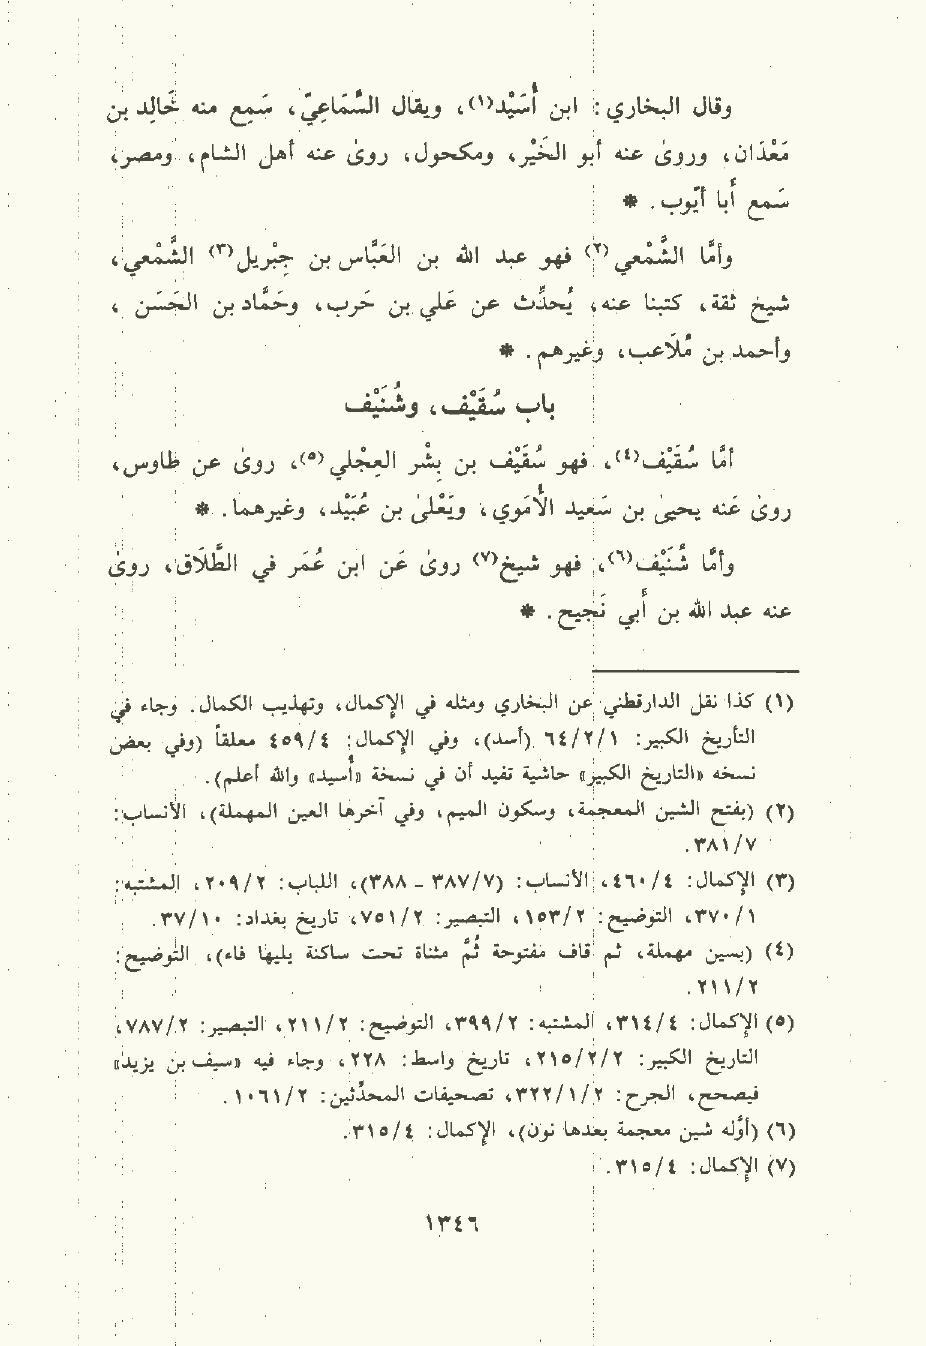 وقال البخاري: ابن أُسَيْد(١)، ويقال السَّمَاعِيّ، سَمِع منه خَالِد بن
مَعْدَان، وروىٰ عنه أبو الخَيْر، ومكحول، روىٰ عنه أهل الشام، ومصر،
سَمع أبا أيّوب. *
وأمَّا الشَّمْعي(٢) فهو عبد الله بن العَبَّاس بن جِبْريل(٣) الشَّمْعي،
شيخ ثقة، كتبنا عنه، يُحدِّث عن عَلي بن حَرب، وحَمَّاد بن الحَسَن ،
وأحمد بن مُلَاعب، وغيرهم. *
باب سُقَيْف، وشُنَيْف
أمَّا سُقَيْف(٤)، فهو سُقَيْف بن بِشْر العِجْلي(٥)، روىٰ عن طاوس،
روىٰ عَنه يحيىٰ بن سَعيد الأُمَوي، ويَعْلىٰ بن عُبَيْد، وغيرهما. *
وأمَّا شُنَيْف(٦)، فهو شيخ(٧) روىٰ عَن ابن عُمَر في الطَّلَاق، روىٰ
عنه عبد الله بن أبي نَجيح. *
(١) كذا نقل الدارقطني عن البخاري ومثله في الإكمال، وتهذيب الكمال. وجاء في
التأريخ الكبير: ٦٤/٢/١ (أسد)، وفي الإكمال: ٤٥٩/٤ معلقاً (وفي بعض
نسخه «التاريخ الكبير» حاشية تفيد أن في نسخة «أُسيد» والله أعلم).
(٢) (بفتح الشين المعجمة، وسكون الميم، وفي آخرها العين المهملة)، الأنساب:
٣٨١/٧.
(٣) الإكمال: ٤٦٠/٤، الأنساب: (٣٨٧/٧ - ٣٨٨)، اللباب: ٢٠٩/٢، المشتبه:
٣٧٠/١، التوضيح: ١٥٣/٢، التبصير: ٧٥١/٢، تاريخ بغداد: ٣٧/١٠.
(٤) (بسين مهملة، ثم قاف مفتوحة ثُمَّ مثناة تحت ساكنة يليها فاء)، التوضيح:
٢١١/٢.
(٥) الإكمال: ٣١٤/٤، المشتبه: ٣٩٩/٢، التوضيح: ٢١١/٢، التبصير: ٧٨٧/٢،
التاريخ الكبير: ٢١٥/٢/٢، تاريخ واسط: ٢٢٨، وجاء فيه «سيف بن يزيد»
فيصحح، الجرح: ٣٢٢/١/٢، تصحيفات المحدِّثين: ١٠٦١/٢.
(٦) (أوَّله شين معجمة بعدها نون)، الإكمال: ٣١٥/٤.
(٧) الإكمال: ٣١٥/٤.
١٣٤٦